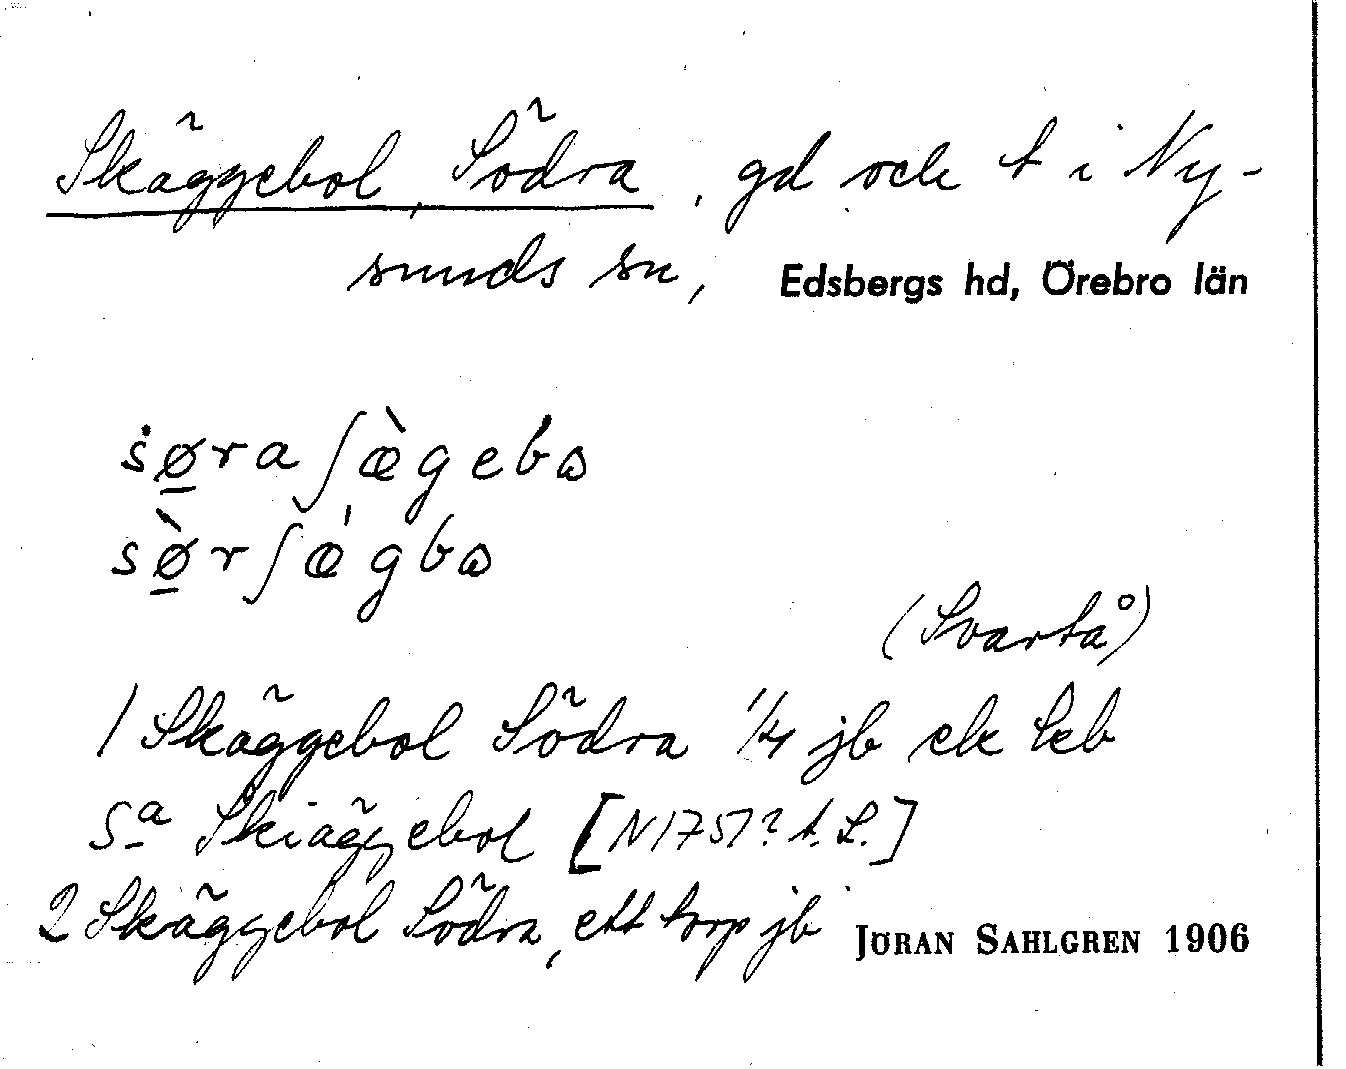 Skäggebol, Södra, gd och t i Ny-
sunds sn, Edsbergs hd, Örebro län
sø̲ra ʃæ̀gebɷ
sø̲̀rʃæ̍gbɷ
(Svartå)
1 Skäggebol Södra 1/4 jb ek
Sa Skiäggebol [N1757? A.L.]
2 Skäggebol Södra, ett torp jb JÖRAN SAHLGREN 1906